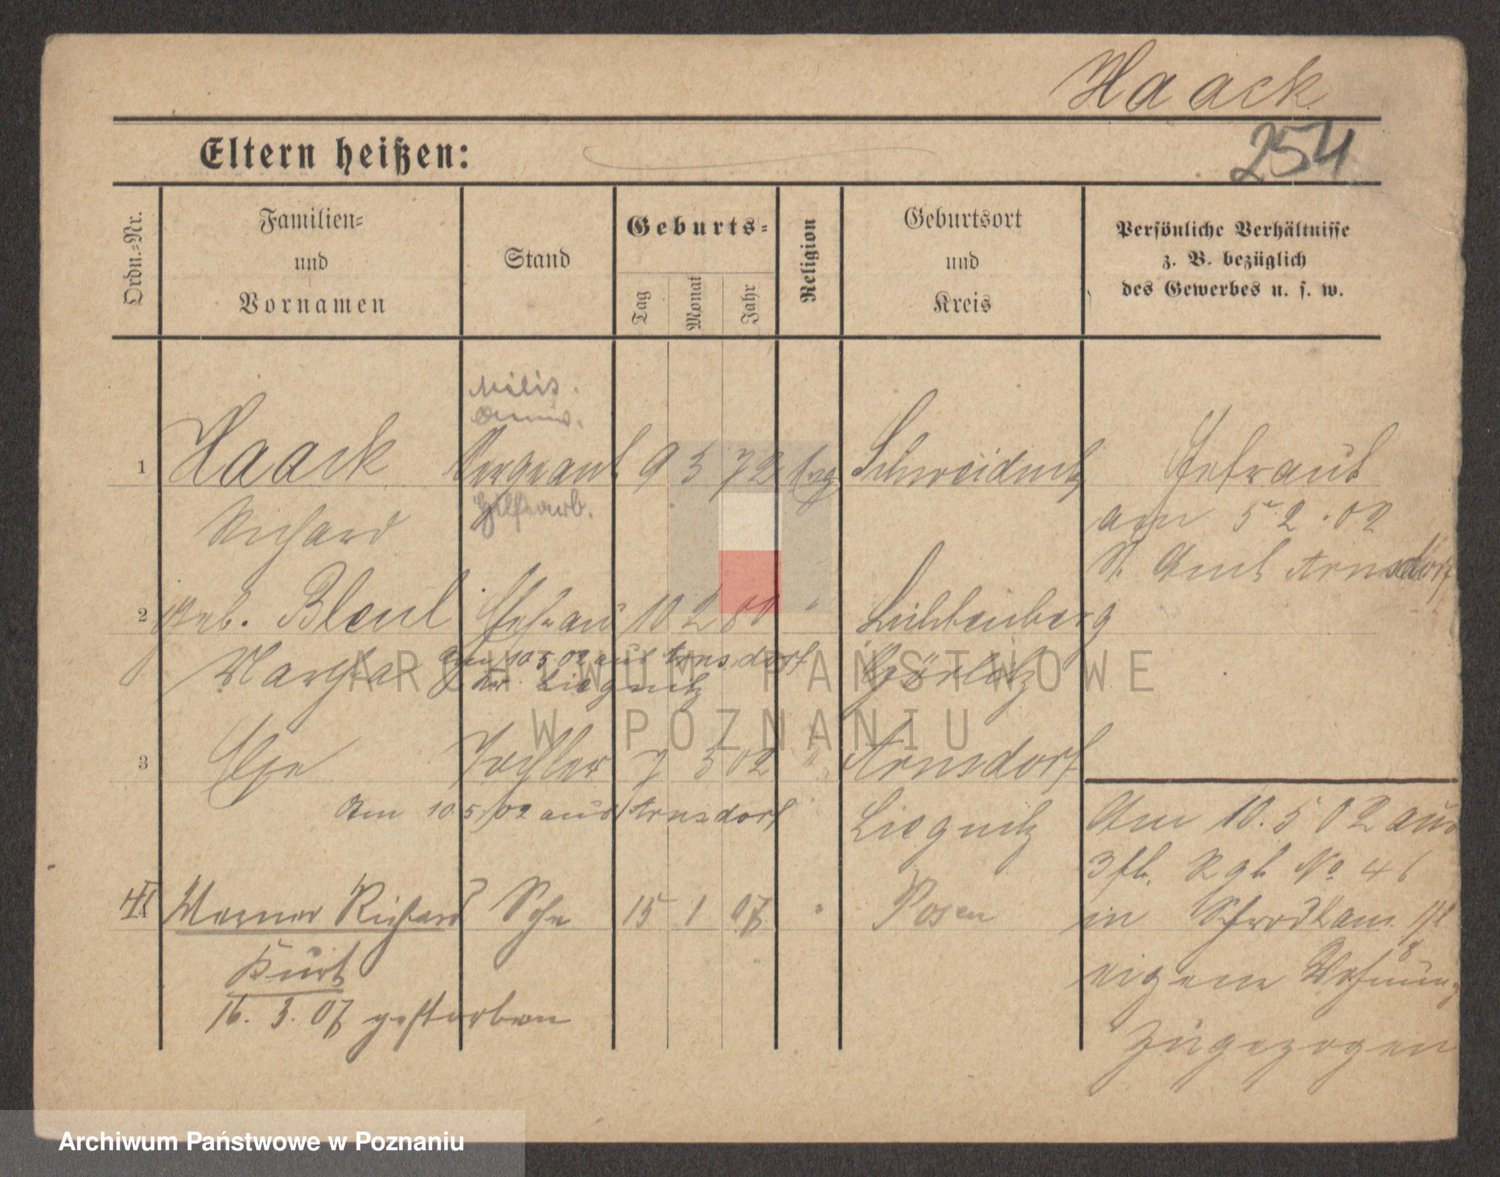 Haack
254
Eltern heißen:
Ordn.-Nr.
Familien-
und
Vornamen
Stand
Geburts-
Tag
Monat
Jahr
Religion
Geburtsort
und
Kreis
Persönliche Verhältnisse
z. B. bezüglich
des Gewerbes u. s. w.
Milit.
1 Haack Sergeant 9 5 72 evg Schweidnitz Getraut
Richard Hilfsarb. am 5 2. 02
St. Amt Arnsdorf
2 geb. Bleul Ehefrau 10 2 80 " Lichtenberg
Martha am 10 5 02 aus Arnsdorf Görlitz
Kr. Liegnitz
3 Else Tochter 7 3 02 " Arnsdorf
Am 10. 5. 02 aus Arnsdorf Liegnitz Am 10. 5 02 aus
No 46
4 Werner Richard Sohn 15 1 07 " Posen in
Kurt eigene Wohnung
16. 3. 07 gestorben
zugezogen
ARCHIWUM PAŃSTWOWE
W POZNANIU
Archiwum Państwowe w Poznaniu